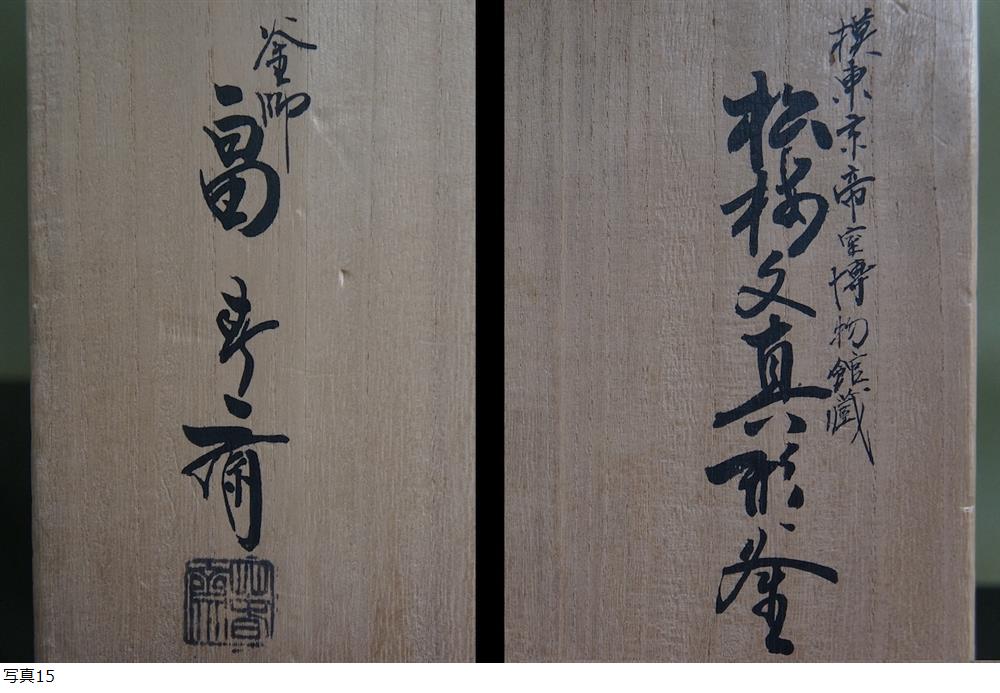 模東京帝室博物館蔵
松梅文真形釜
釜師
畠春斎
写真15